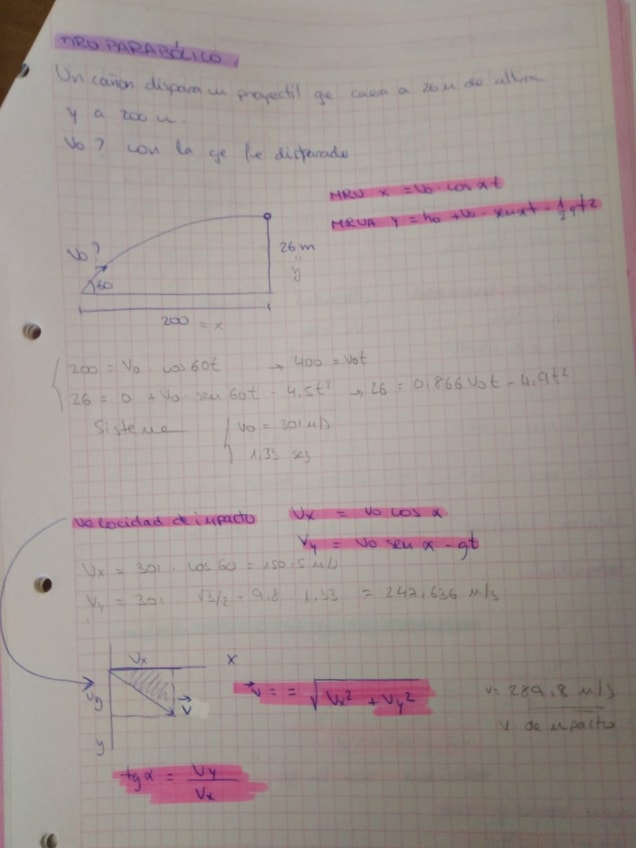 TIRO PARABÓLICO
Un cañon dispara un proyectil qe caera a 26 m de altura
y a 200 m.
Vo? con la qe fue disparado
MRU x = Vo · cos αt
MRUA y = ho + Vo · sen αt - 1/2 gt2
Vo?
60
26 m
y
200 = x
200 = Vo · cos 60t → 400 = Vot
26 = 0 + Vo sen 60t - 4,9t² → 26 = 0,866 Vot - 4,9t²
Sistema Vo = 301 m/s
1,33 sg
Velocidad de impacto Vx = Vo cos α
Vy = Vo sen α - gt
Vx = 301 · cos 60 = 150,5 m/s
Vy = 301 √3/2 - 9,8 · 1,33 = 247,636 m/s
Vx x
Vy
v
y
v = = √Vx² + Vy²
v: 289,8 m/s
v de impacto
tg α = Vy / Vx